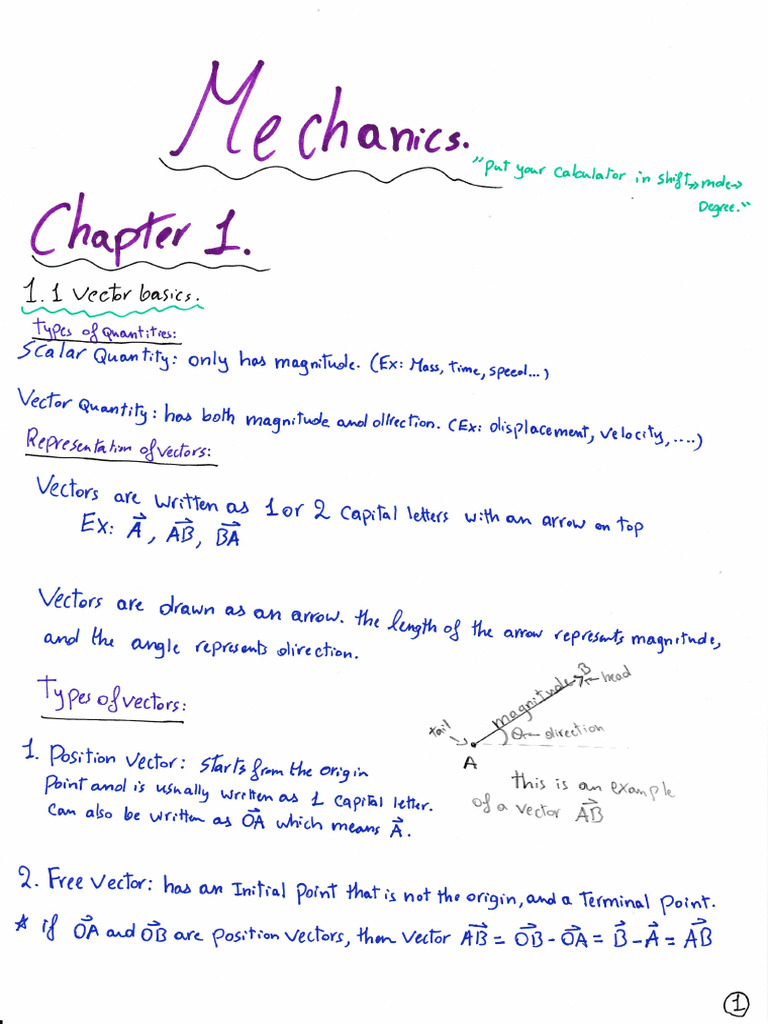 Mechanics.
"Put your calculator in shift»mode->
Degree."
Chapter 1.
1.1 Vector basics.
Types of Quantities:
Scalar Quantity: only has magnitude. (Ex: Mass, time, speed...)
Vector Quantity: has both magnitude and direction. (Ex: displacement, velocity, ....)
Representation of vectors:
Vectors are written as 1 or 2 capital letters with an arrow on top
Ex: A⃗, AB⃗, BA⃗
Vectors are drawn as an arrow. the length of the arrow represents magnitude,
and the angle represents direction.
Types of vectors:
B
← head
magnitude
tail
θ ← direction
A
this is an example
of a vector AB⃗
1. Position Vector: starts from the origin
Point and is usually written as 1 capital letter.
Can also be written as OA⃗ which means A⃗.
2. Free Vector: has an Initial Point that is not the origin, and a Terminal Point.
* if OA⃗ and OB⃗ are position vectors, then vector AB⃗ = OB⃗ - OA⃗ = B⃗ - A⃗ = AB⃗
1